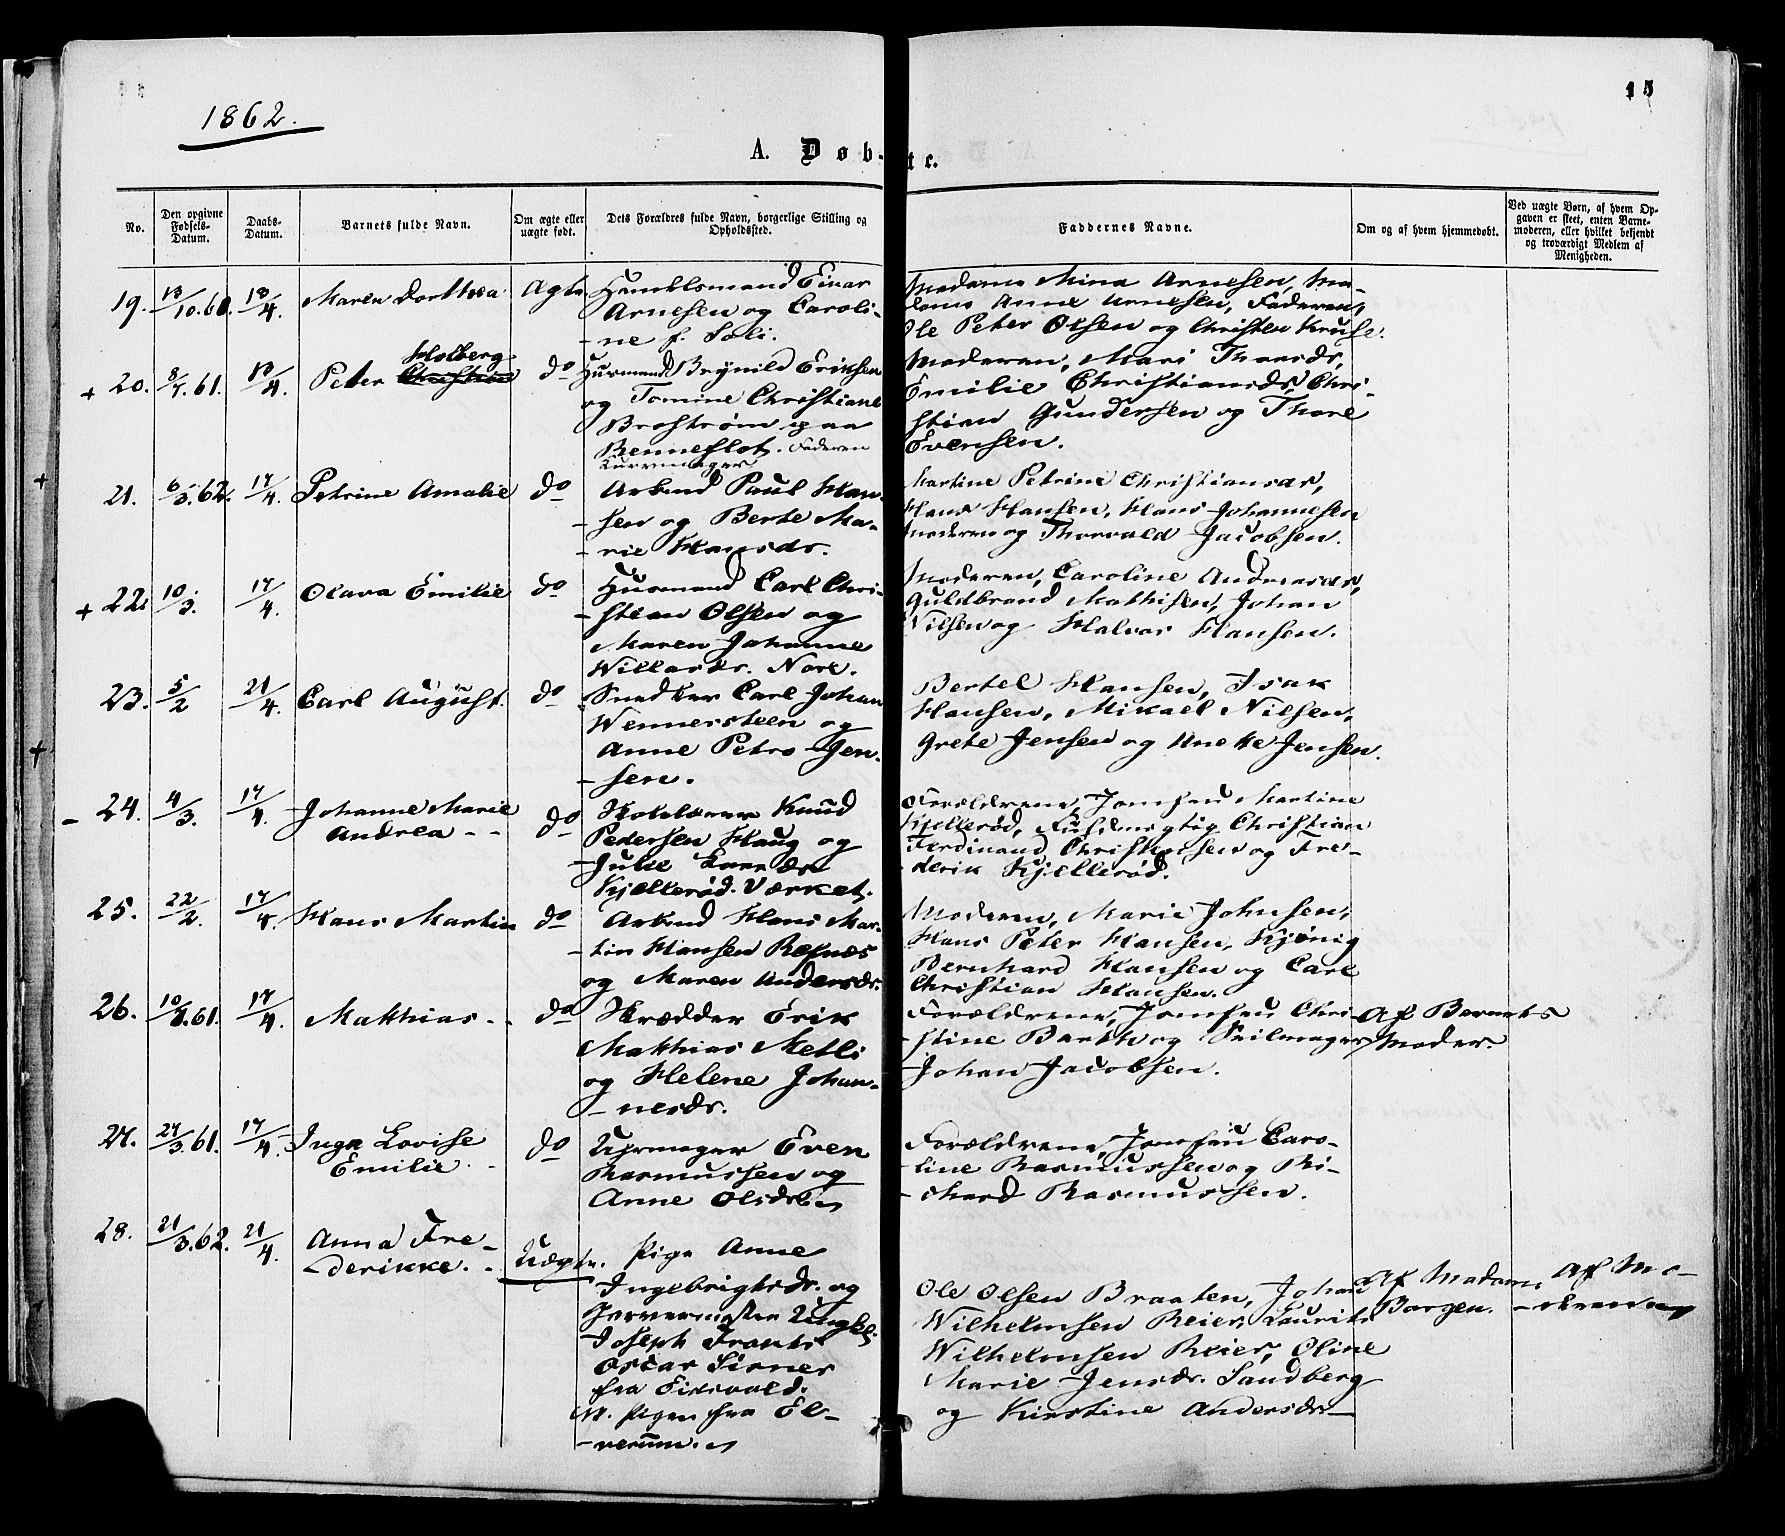 15
1862.
A. Døb-te.
No.
Den opgivne Fødsels-Datum.
Daabs-Datum.
Barnets fulde Navn.
Om ægte eller uægte født.
Dets Forældres fulde Navn, borgerlige Stilling og Opholdssted.
Faddernes Navne.
Om og af hvem hjemmedøbt.
Ved uægte Børn, af hvem Opgaven er skeet, enten Barnemoderen, eller hvilket bekjendt og troværdigt Medlem af Menigheden.
19. 13/10.60. 18/4. Maren Dorthea Ægte
Handelsmand Einar
Arnesen og Caroli-
-ne f. Sali.
Madame Mina Arnesen, Ma-
dame Anne Arnesen, Faderen,
Ole Peter Olsen og Christen Kruse.
+ 20. 8/7.61. 13/4. Peter Christian Holberg do
Husmand Brynild Eriksen
og Tomine Christiane
Brostrøm paa
Benneslot. Faderen
Kurvmager
Moderen, Mari Thorsdr,
Emilie Christiansdr, Chri-
stian Gundersen og Thore
Evensen.
+ 21. 6/3.62. 17/4. Petrine Amalie do
Arbmd Paul Han-
-sen og Berte Ma-
-rie Hansdr.
Martine Petrine Christiansdr,
Hans Hansen, Hans Johannesen
Moderen og Thorvald Jacobsen.
+ 22. 10/3. 17/4. Olava Emilie do
Husmand Carl Chri-
-stian Olsen og
Maren Johanne
Willardr. Nore.
Moderen, Caroline Andreasdr,
Guldbrand Mathisen, Johan
Nilsen og Halvor Hansen.
23. 5/2 21/4. Carl August. do
Snedker Carl Johan
Wennersteen og
Anne Petra Jen-
-sen.
Bertel Hansen, Isak
Hansen, Mikael Nilsen,
Grete Jensen og Aneke Jensen.
+
- 24. 4/3. 17/4. Johanne Marie
Andrea - - do
Skolelærer Knud
Pedersen Haug og
Julie
Kjellerød. Værket.
Forældrene, Jomfru Martine
Kjellerød, Christian
Ferdinand Christensen og Fre-
-derik Kjellerød.
25. 22/2. 17/4. Hans Martin do
Arbmd Hans Mar-
-tin Hansen Refnæs
og Maren Andersdr.
Moderen, Marie Johnsen,
Hans Peter Hansen, Kjønig
Bernhard Hansen og Carl
Christian Hansen.
26. 10/8.61. 17/4. Matthias - - do
Skrædder Erik
Matthias Metli
og Helene Johan-
-nesdr.
Forældrene, Jomfru Chri-
-stine Barth og Seilmager
Johan Jacobsen.
Af Barnets
Moder.
27. 27/3.61. 17/4. Inga Lovise
Emilie. - do
Uhrmager Even
Rasmussen og
Anne Olsdr
Forældrene, Jomfru Caro-
-line Rasmussen og Ri-
-chard Rasmussen.
28. 21/3.62. 21/4. Anna Fre-
-derikke. - Uægte.
Pige Anne
Ingebrigtsdr. og
Garvermester Ungkl.
Joseph Frants
Oscar Sirner
fra Eidsvold.
N. Pigen fra El-
-verum.
Ole Olsen Braaten, Johan
Wilhelmsen Reier, Laurits
Wilhelmsen Reier, Oline
Marie Jensdr. Sandberg
og Kirstine Andersdr
Af Madam
Borgen.
Af Mo-
-deren